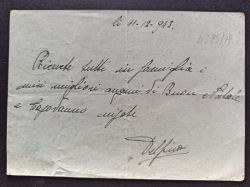 li 11-12-943.
Ricevete tutti in famiglia i
miei migliori auguri di Buon Natale
e Capodanno
Delfino